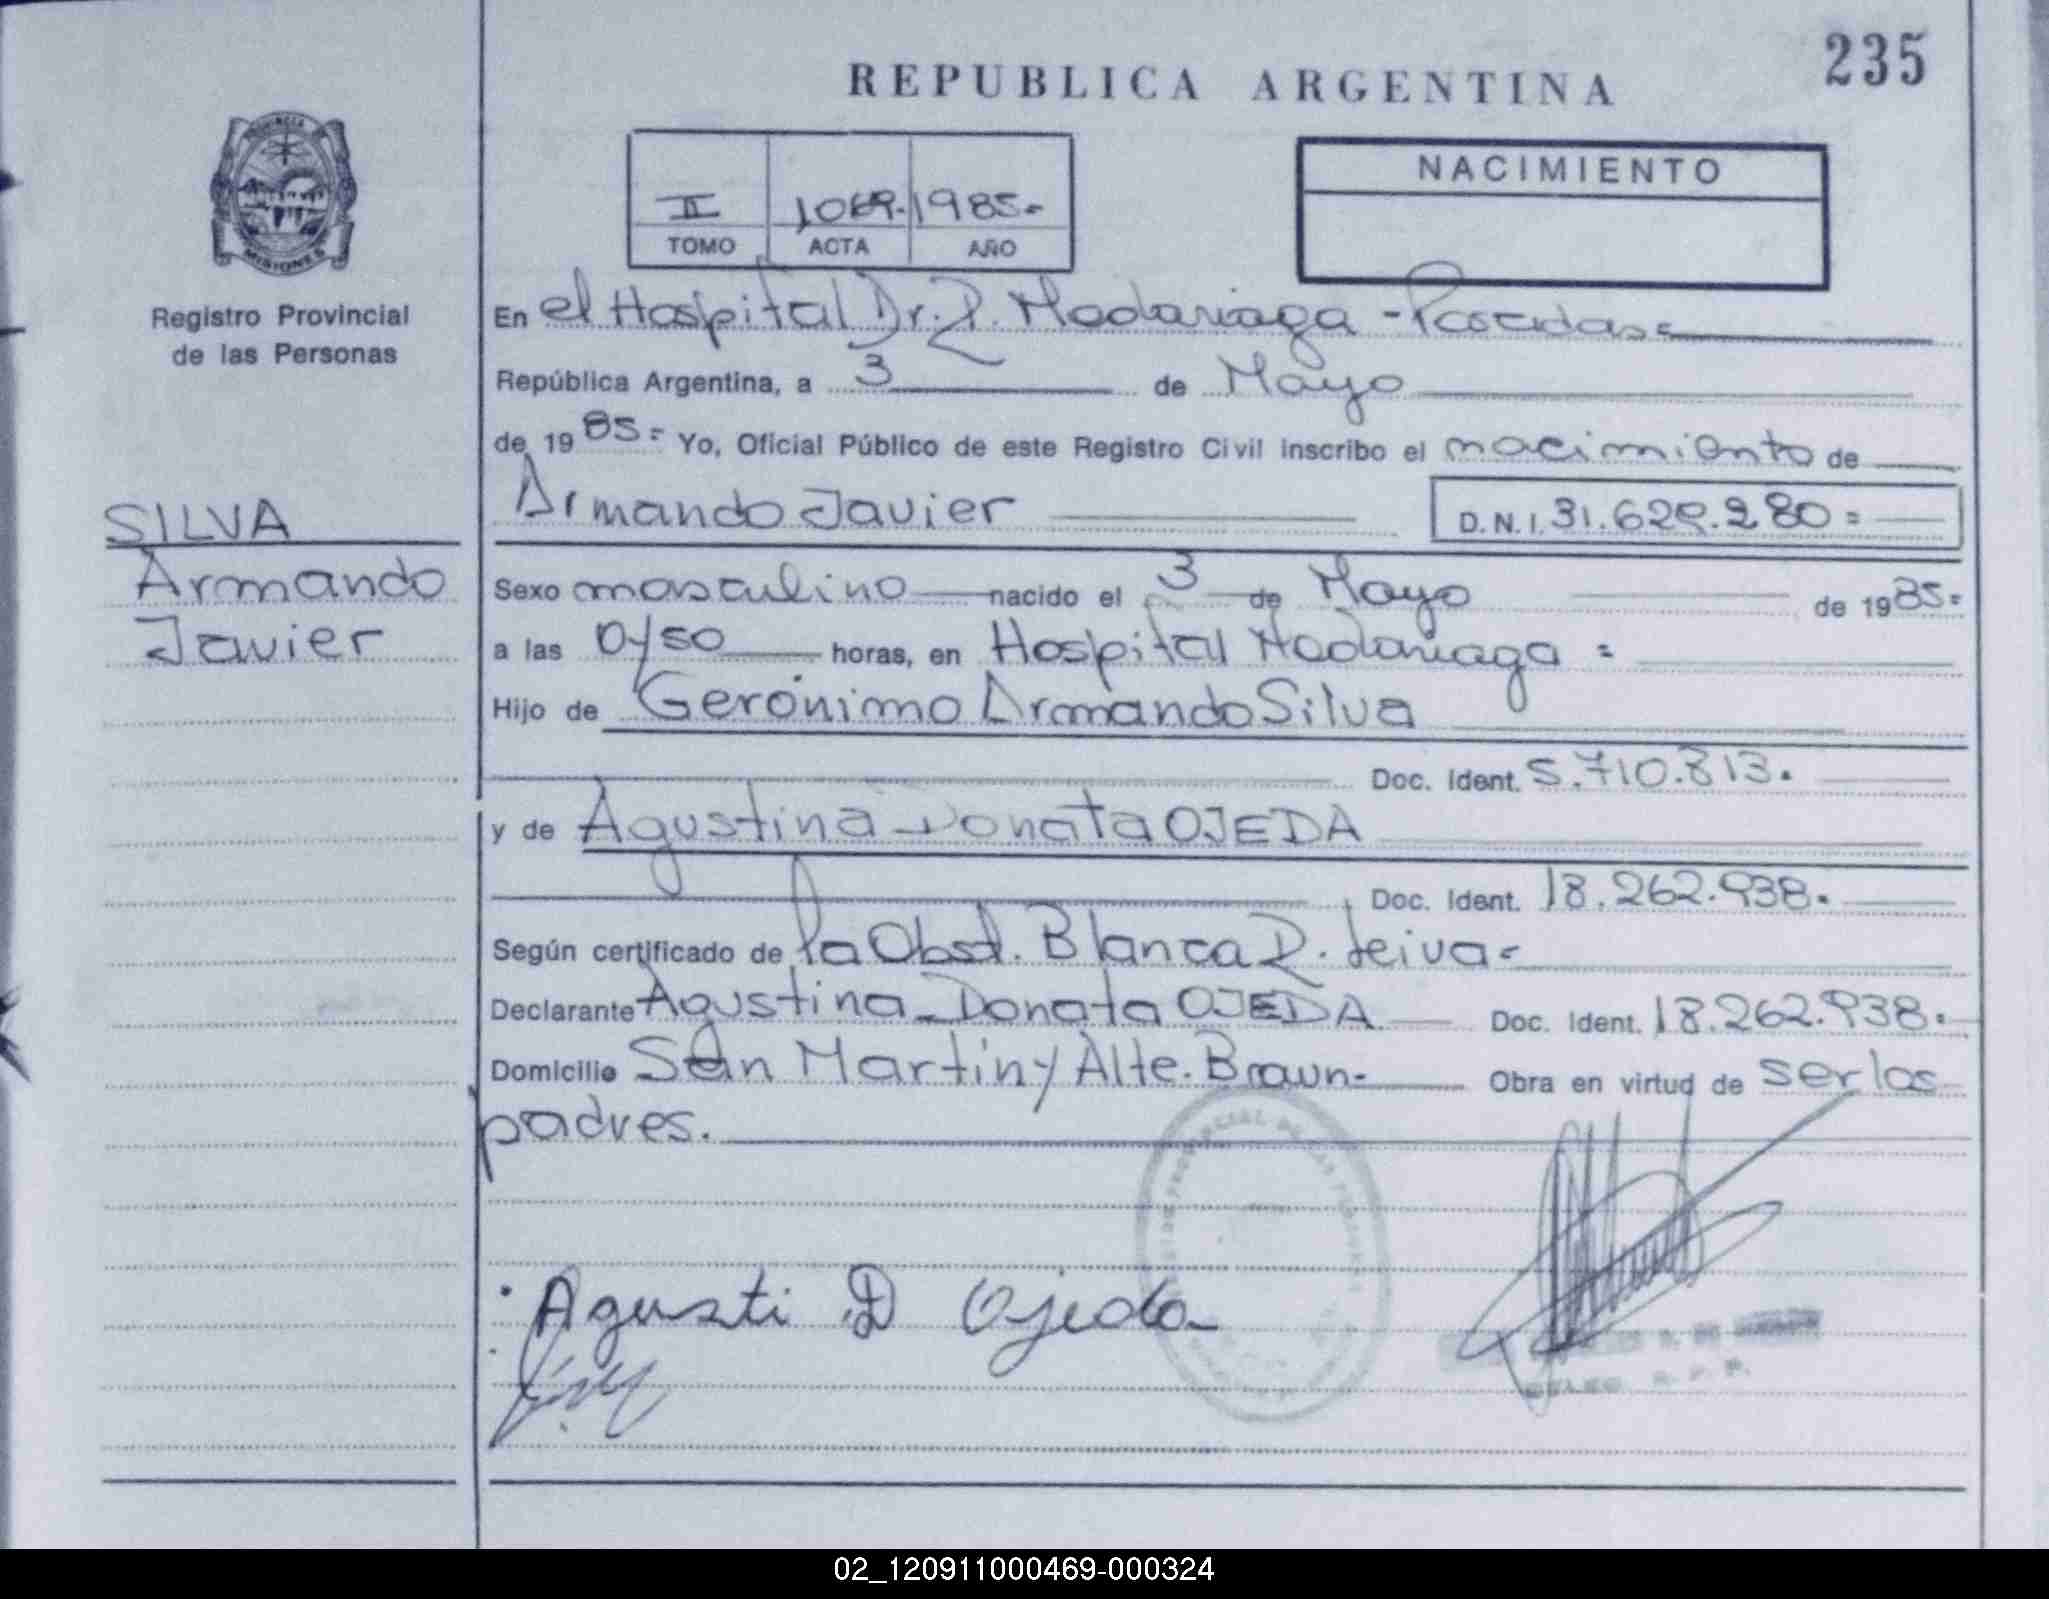 235
REPUBLICA ARGENTINA
PROVINCIA
MISIONES
Registro Provincial
de las Personas
NACIMIENTO
II 1069.- 1985.-
TOMO ACTA AÑO
En el Hospital Dr. R. Madariaga - Posadas =
República Argentina, a 3 de Mayo
de 1985.= Yo, Oficial Público de este Registro Civil inscribo el nacimiento de
Armando Javier D.N.I. 31.629.280 =
SILVA
Armando
Javier
Sexo masculino nacido el 3 de Mayo de 1985.=
a las 0y50 horas, en Hospital Madariaga =
Hijo de Gerónimo Armando Silva
Doc. Ident. 5.710.813.
y de Agustina Donata OJEDA
Doc. Ident. 18.262.938.
Según certificado de la Obst. Blanca R. Leiva =
Declarante Agustina Donata OJEDA Doc. Ident. 18.262.938.
Domicilio San Martin y Alte. Brown.- Obra en virtud de ser los
padres.
Agusti D Ojeda
R. P. P.
02_120911000469-000324